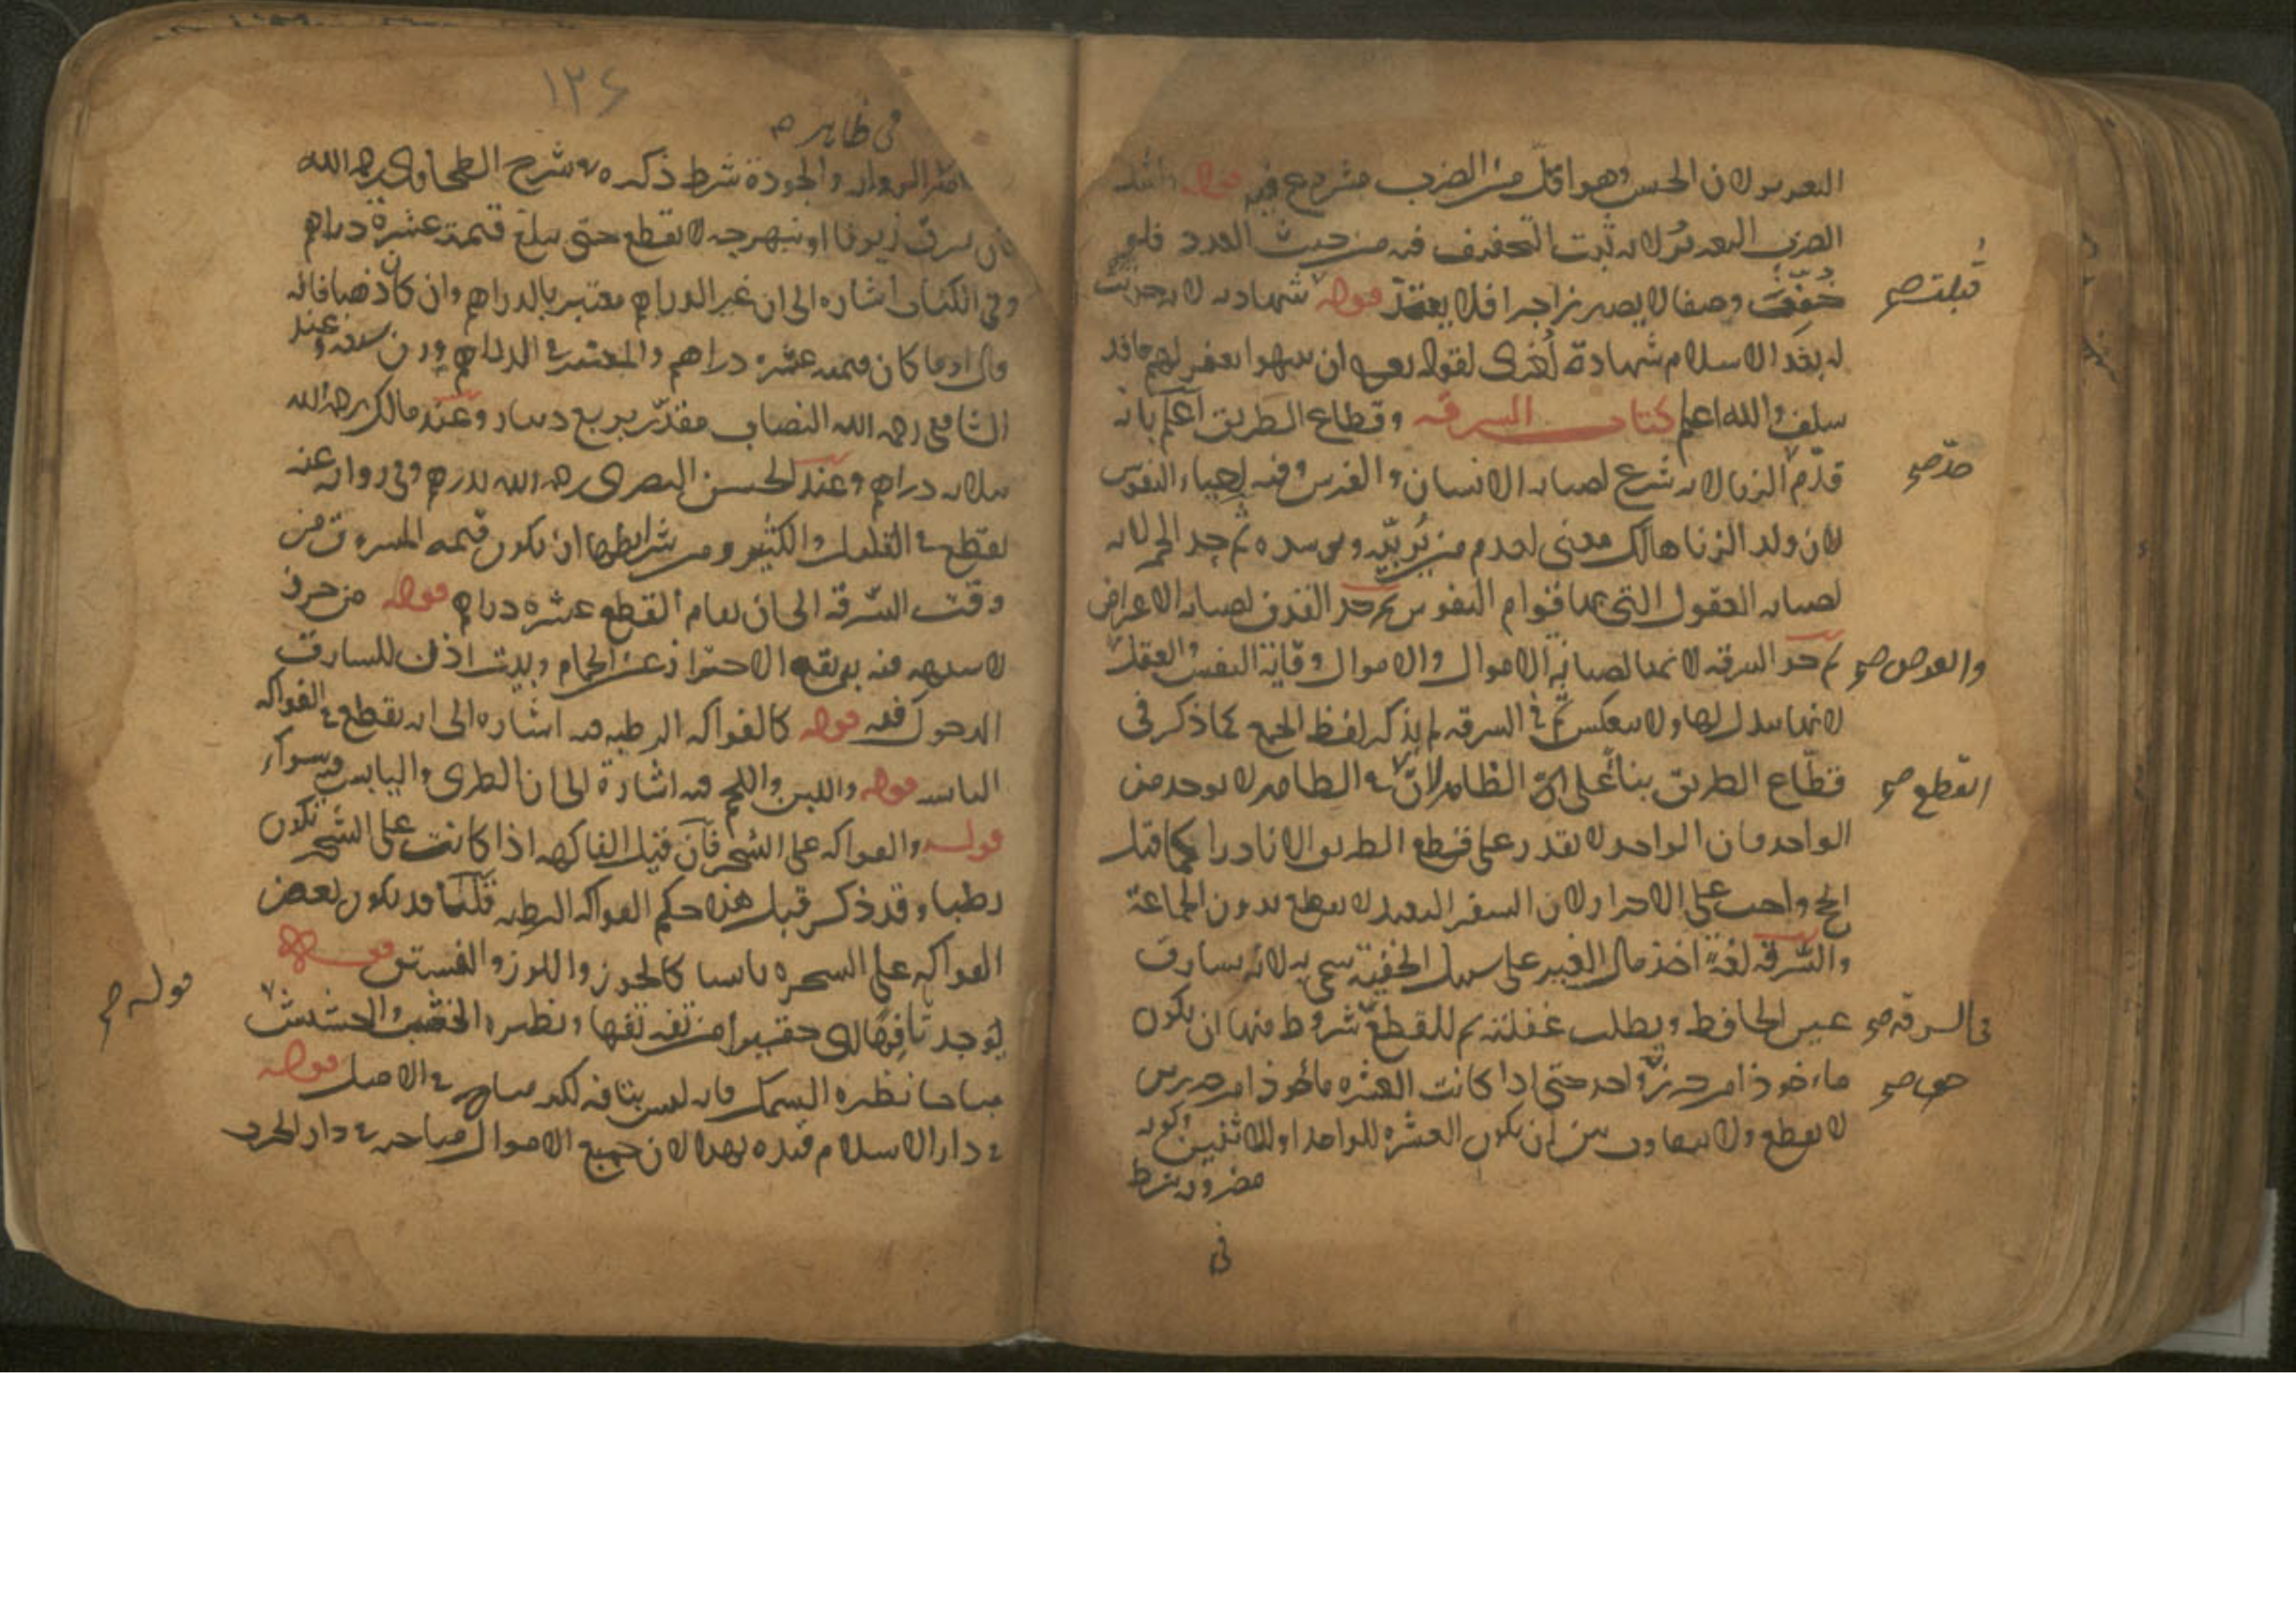 التعزير لان الحبس وهو اقل من الضرب مشروع فيه قوله واشد
الضرب التعزير لانه ثبت التخفيف فيه من حيث العدد فلو
خفف وصفا لا يصير زاجرا فلا يعتبر قوله شهادته لانه حدثت
قبلت صح
له بعد الاسلام شهادة اخرى لقوله تعالى ان ينتهوا يغفر لهم ما قد
سلف والله اعلم كتاب السرقه وقطاع الطريق اعلم بانه
قدم الزنا لانه شرع لصيانه الانسان و الفرس وفيه احياء النفوس
حد صح
لان ولد الزنا هالك معنى لعدم من يربيه ثم حد الخمر لانه
لصيانه العقول التي بها قوام النفوس ثم حد القذف لصيانه الاعراض
ثم حد السرقه لانها لصيانة الاموال والاموال وقاية النفس والعقل
والعرض صح
لانها تبذل لها ولا ينعكس ثم في السرقه لم يذكر لفظ الجمع كما ذكر في
قطاع الطريق بناء على الظاهر لان في الظاهر لا يوجد من
القطع صح
الواحد فان الواحد لا يقدر على قطع الطريق الا نادرا كما قيل
الحج واجب على الاحرار لان السفر البعيد لا يقطع بدون الجماعة
والسرقه لغة اخذ مال الغير على سبيل الخفية سمى به لانه يسارق
عين الحافظ ويطلب غفلته ثم للقطع شروط منها ان يكون
في السرقه صح
ماخوذا من حرز واحد حتى اذا كانت العشره ماخوذا من حرزين
لا يقطع ولا يتفاوت بين ان يكون العشره للواحد او للاثنين وكونه
مضروبه شرط
في
١٢٤
في ظاهر
الروايه والجودة شرط ذكره في شرح الطحاوي رحمه الله
فان سرق زيوفا او نبهرجه لا يقطع حتى يبلغ قيمته عشرة دراهم
وفي الكتاب اشاره الى ان غير الدراهم معتبر بالدراهم وان كان ذهبا فانه
قال او ما كان قيمته عشره دراهم والمعتبر في الدراهم وزن سبعه وعند
الشافعي رحمه الله النصاب مقدر بربع دينار وعند مالك رحمه الله
بثلاثه دراهم وعند الحسن البصرى رحمه الله بدرهم وفي روايه عنه
يقطع في القليل والكثير ومن شرايطها ان يكون قيمه المسروق من
وقت السرقه الى ان يقام القطع عشره دراهم قوله من حرز
لا شبهه فيه يقع الاحتراز عن الحمام وبيت اذن للسارق
الدخول فيه قوله كالفواكه الرطبه فيه اشاره الى انه يقطع في الفواكه
اليابسه قوله واللبن واللحم فيه اشارة الى ان الطرى واليابس فيه سواء
قوله والفواكه على الشجر فان قيل الفاكهه اذا كانت على الشجر تكون
رطبا وقد ذكر قبل هذا حكم الفواكه الرطبه قلنا قد يكون بعض
الفواكه على الشجره يابسا كالجوز واللوز والفستق قوله
يوجد تافها اي حقيرا من تفه تفها ونظيره الخشب والحشيش
قوله صح
مباحا نظيره السمك فانه ليس بتافه لكنه مباح في الاصل قوله
في دار الاسلام قيده بهذا لان جميع الاموال مباحه في دار الحرب